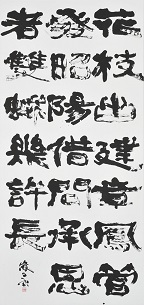 花枝出建章鳳管
發昭陽借問承恩
者雙蛾幾許長